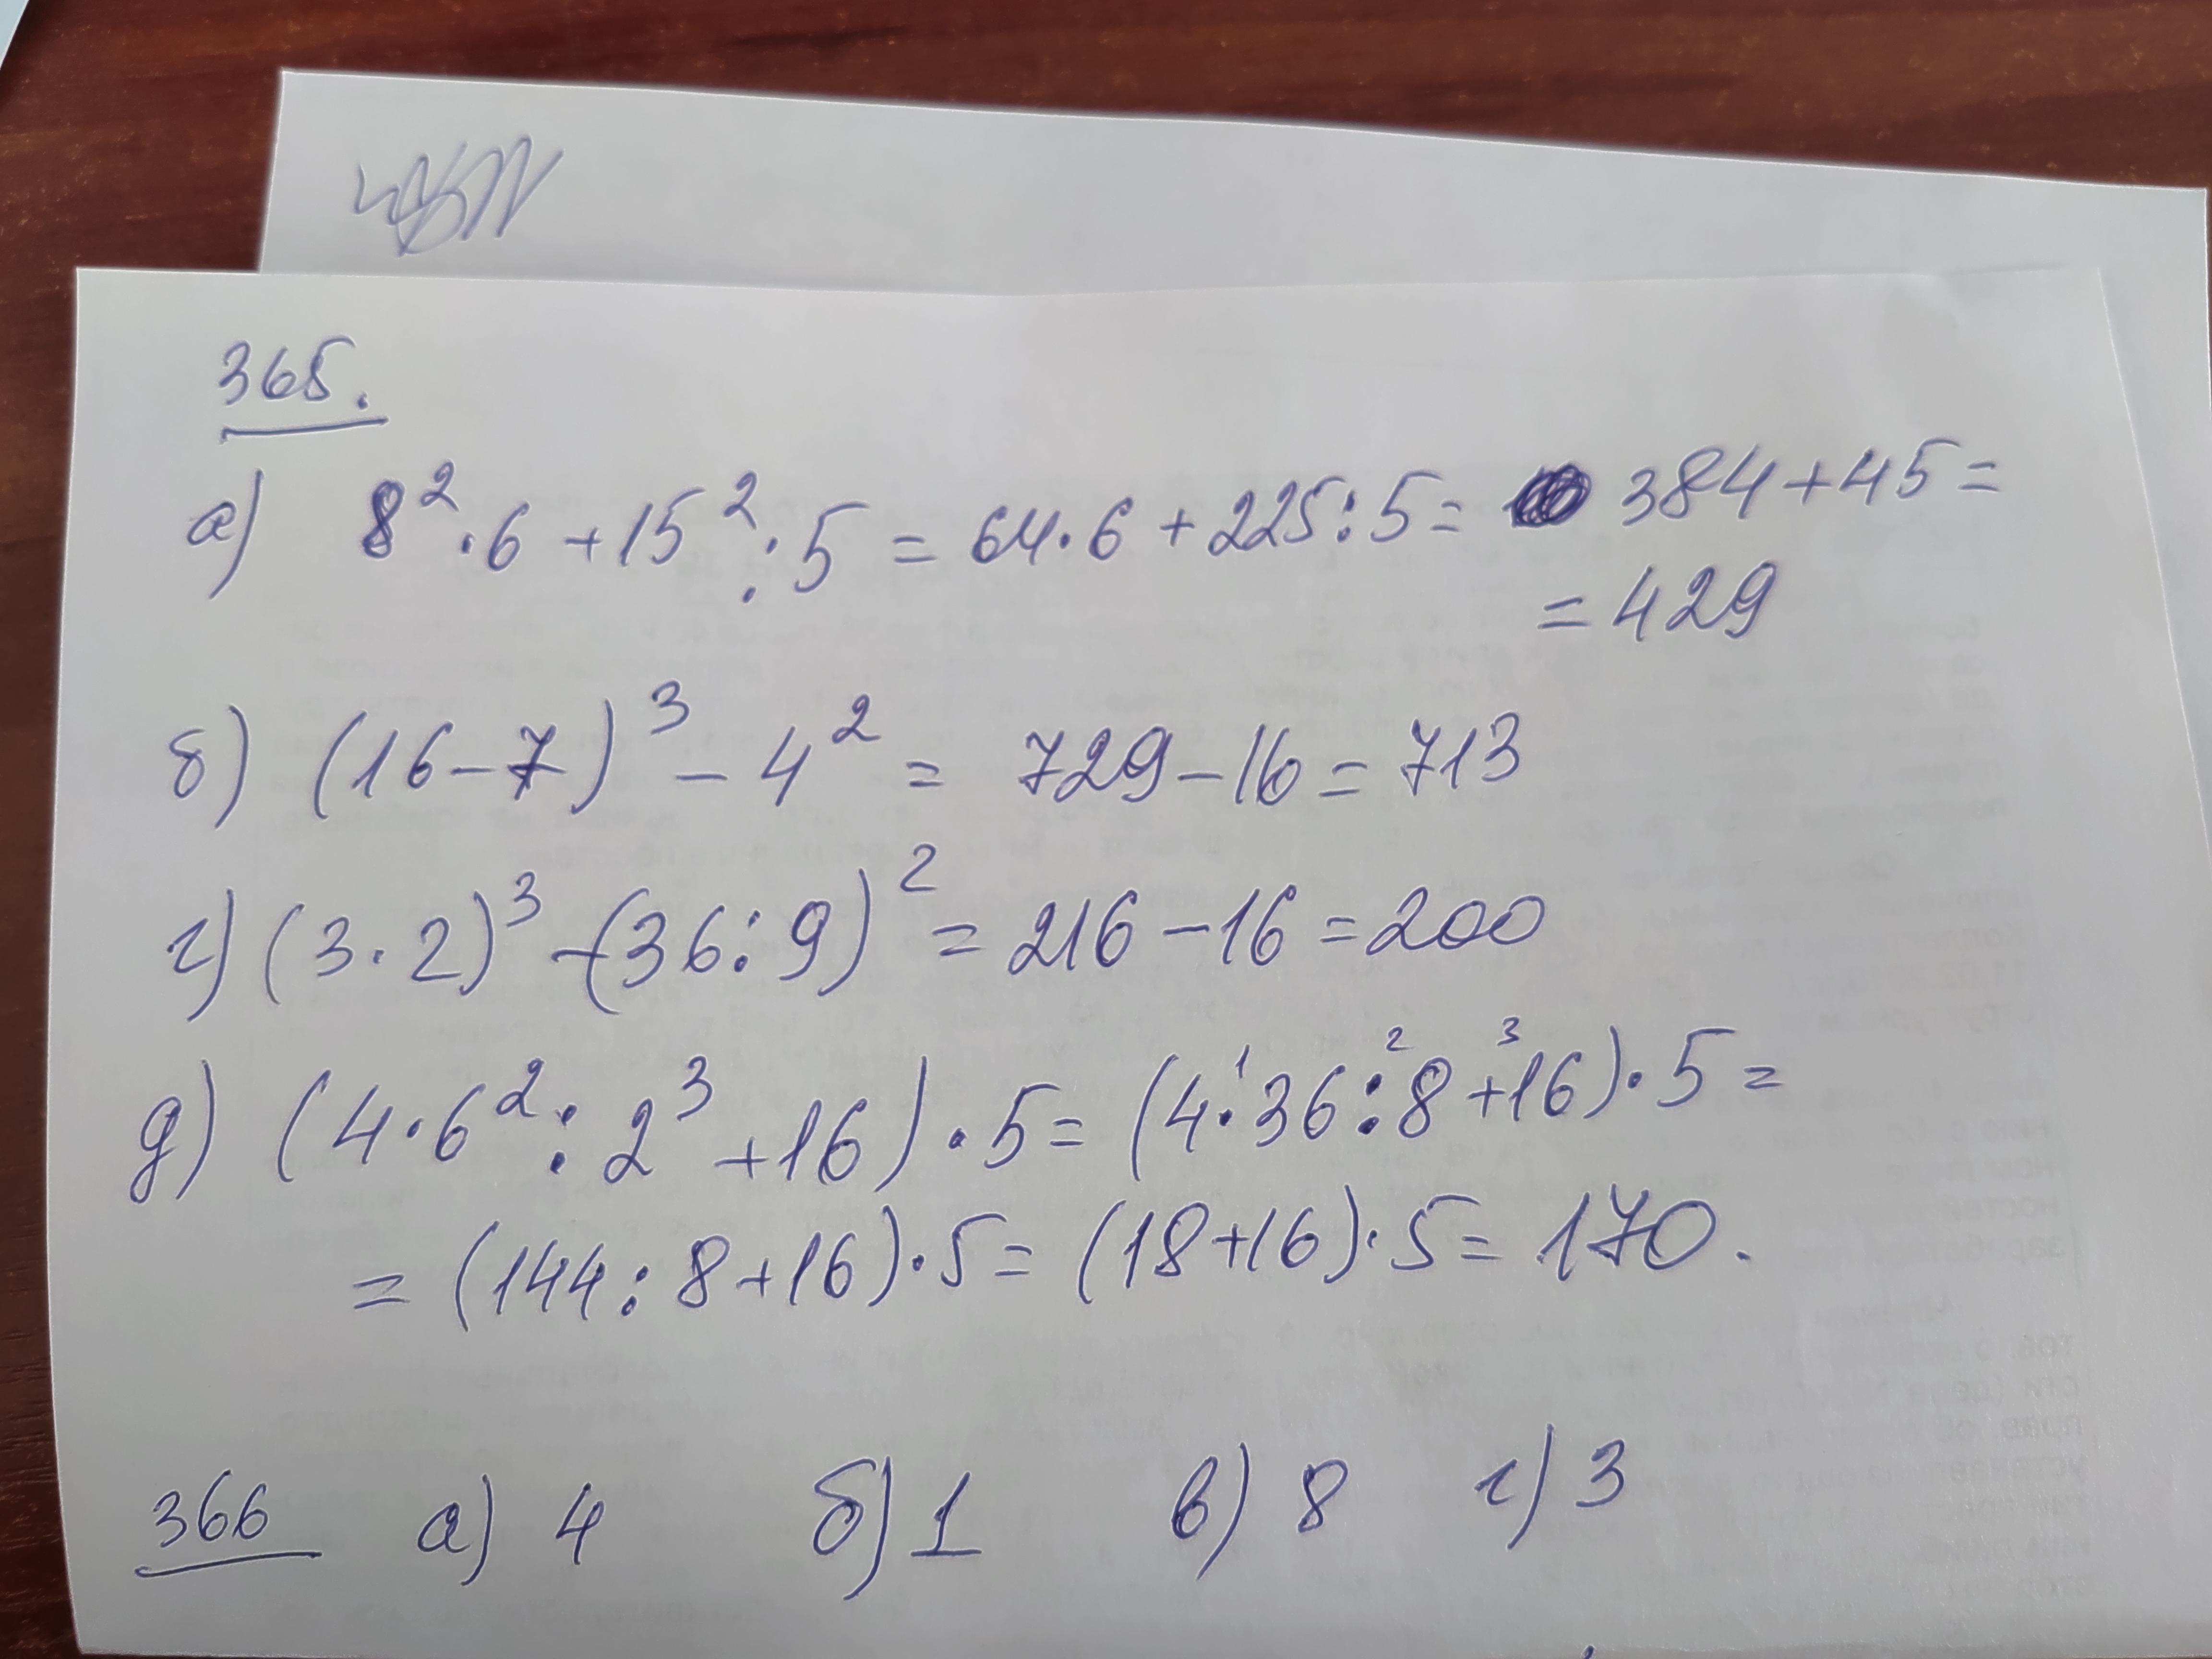 365.
а) 8² · 6 + 15² : 5 = 64 · 6 + 225 : 5 = 384 + 45 =
= 429
б) (16 - 7)³ - 4² = 729 - 16 = 713
г) (3 · 2)³ - (36 : 9)² = 216 - 16 = 200
1 2 3
д) (4 · 6² : 2³ + 16) · 5 = (4 · 36 : 8 + 16) · 5 =
= (144 : 8 + 16) · 5 = (18 + 16) · 5 = 170.
366 а) 4 б) 1 в) 8 г) 3